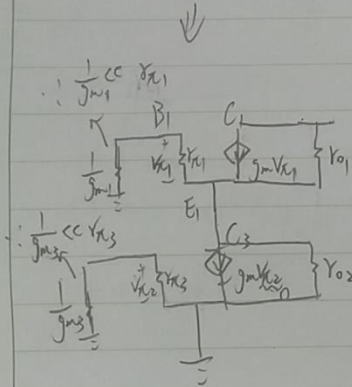 ⇓
∵ 1/gm1 << rπ1
B1
C1
1/gm1
+
Vπ1
-
rπ1
gmVπ1
ro1
E1
∵ 1/gm3 << rπ3
C3
1/gm3
+
Vπ2
-
rπ3
gmVπ2
0
ro2